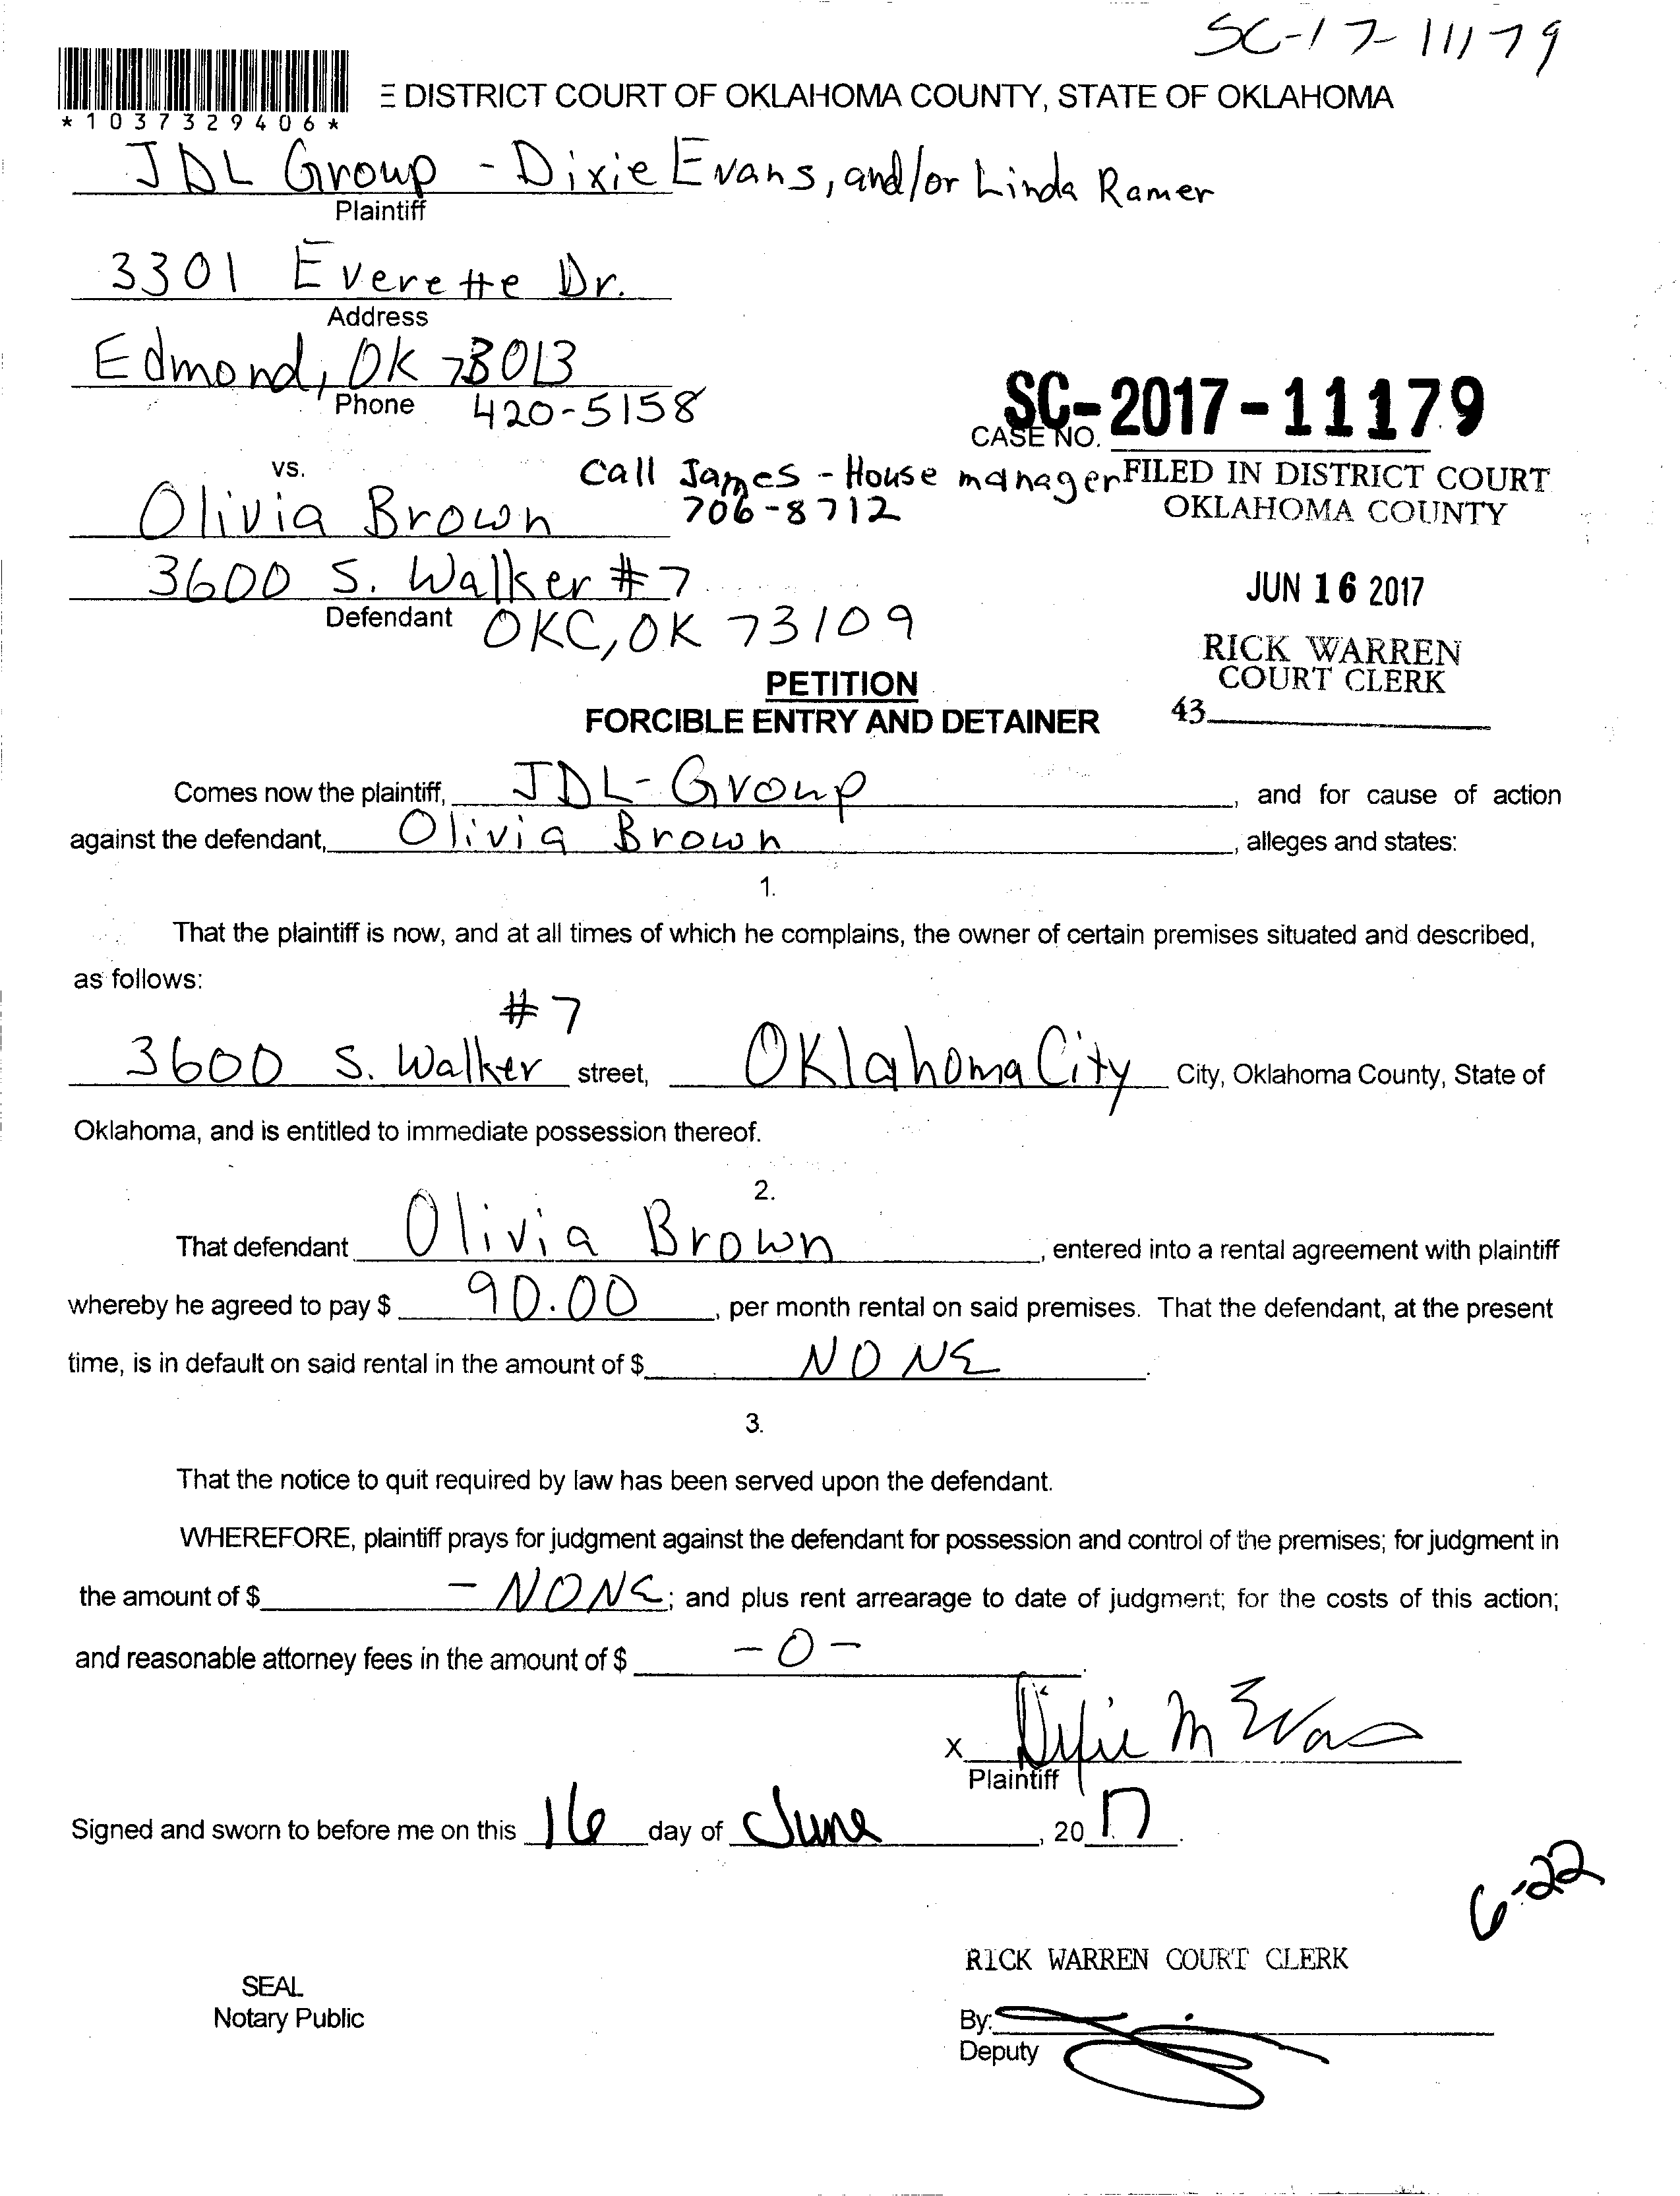 SC-17-11179
*1037329406*
E DISTRICT COURT OF OKLAHOMA COUNTY, STATE OF OKLAHOMA
JDL Group - Dixie Evans, and/or Linda Ramer
Plaintiff
3301 Everette Dr.
Address
Edmond, OK 73013
Phone 420-5158
SC-2017-11179
CASE NO.
vs.
Call James - House manager
706-8712
FILED IN DISTRICT COURT
OKLAHOMA COUNTY
Olivia Brown
3600 S. Walker #7
Defendant OKC, OK 73109
JUN 16 2017
RICK WARREN
COURT CLERK
43
PETITION
FORCIBLE ENTRY AND DETAINER
Comes now the plaintiff, JDL-Group, and for cause of action
against the defendant, Olivia Brown, alleges and states:
1.
That the plaintiff is now, and at all times of which he complains, the owner of certain premises situated and described,
as follows:
#7
3600 S. Walker street, Oklahoma City City, Oklahoma County, State of
Oklahoma, and is entitled to immediate possession thereof.
2.
That defendant Olivia Brown, entered into a rental agreement with plaintiff
whereby he agreed to pay $ 90.00, per month rental on said premises. That the defendant, at the present
time, is in default on said rental in the amount of $ NONE.
3.
That the notice to quit required by law has been served upon the defendant.
WHEREFORE, plaintiff prays for judgment against the defendant for possession and control of the premises; for judgment in
the amount of $ - NONE; and plus rent arrearage to date of judgment; for the costs of this action;
and reasonable attorney fees in the amount of $ -0-.
x Dixie M Evans
Plaintiff
Signed and sworn to before me on this 16 day of June, 2017.
6-22
RICK WARREN COURT CLERK
SEAL
Notary Public
By:
Deputy